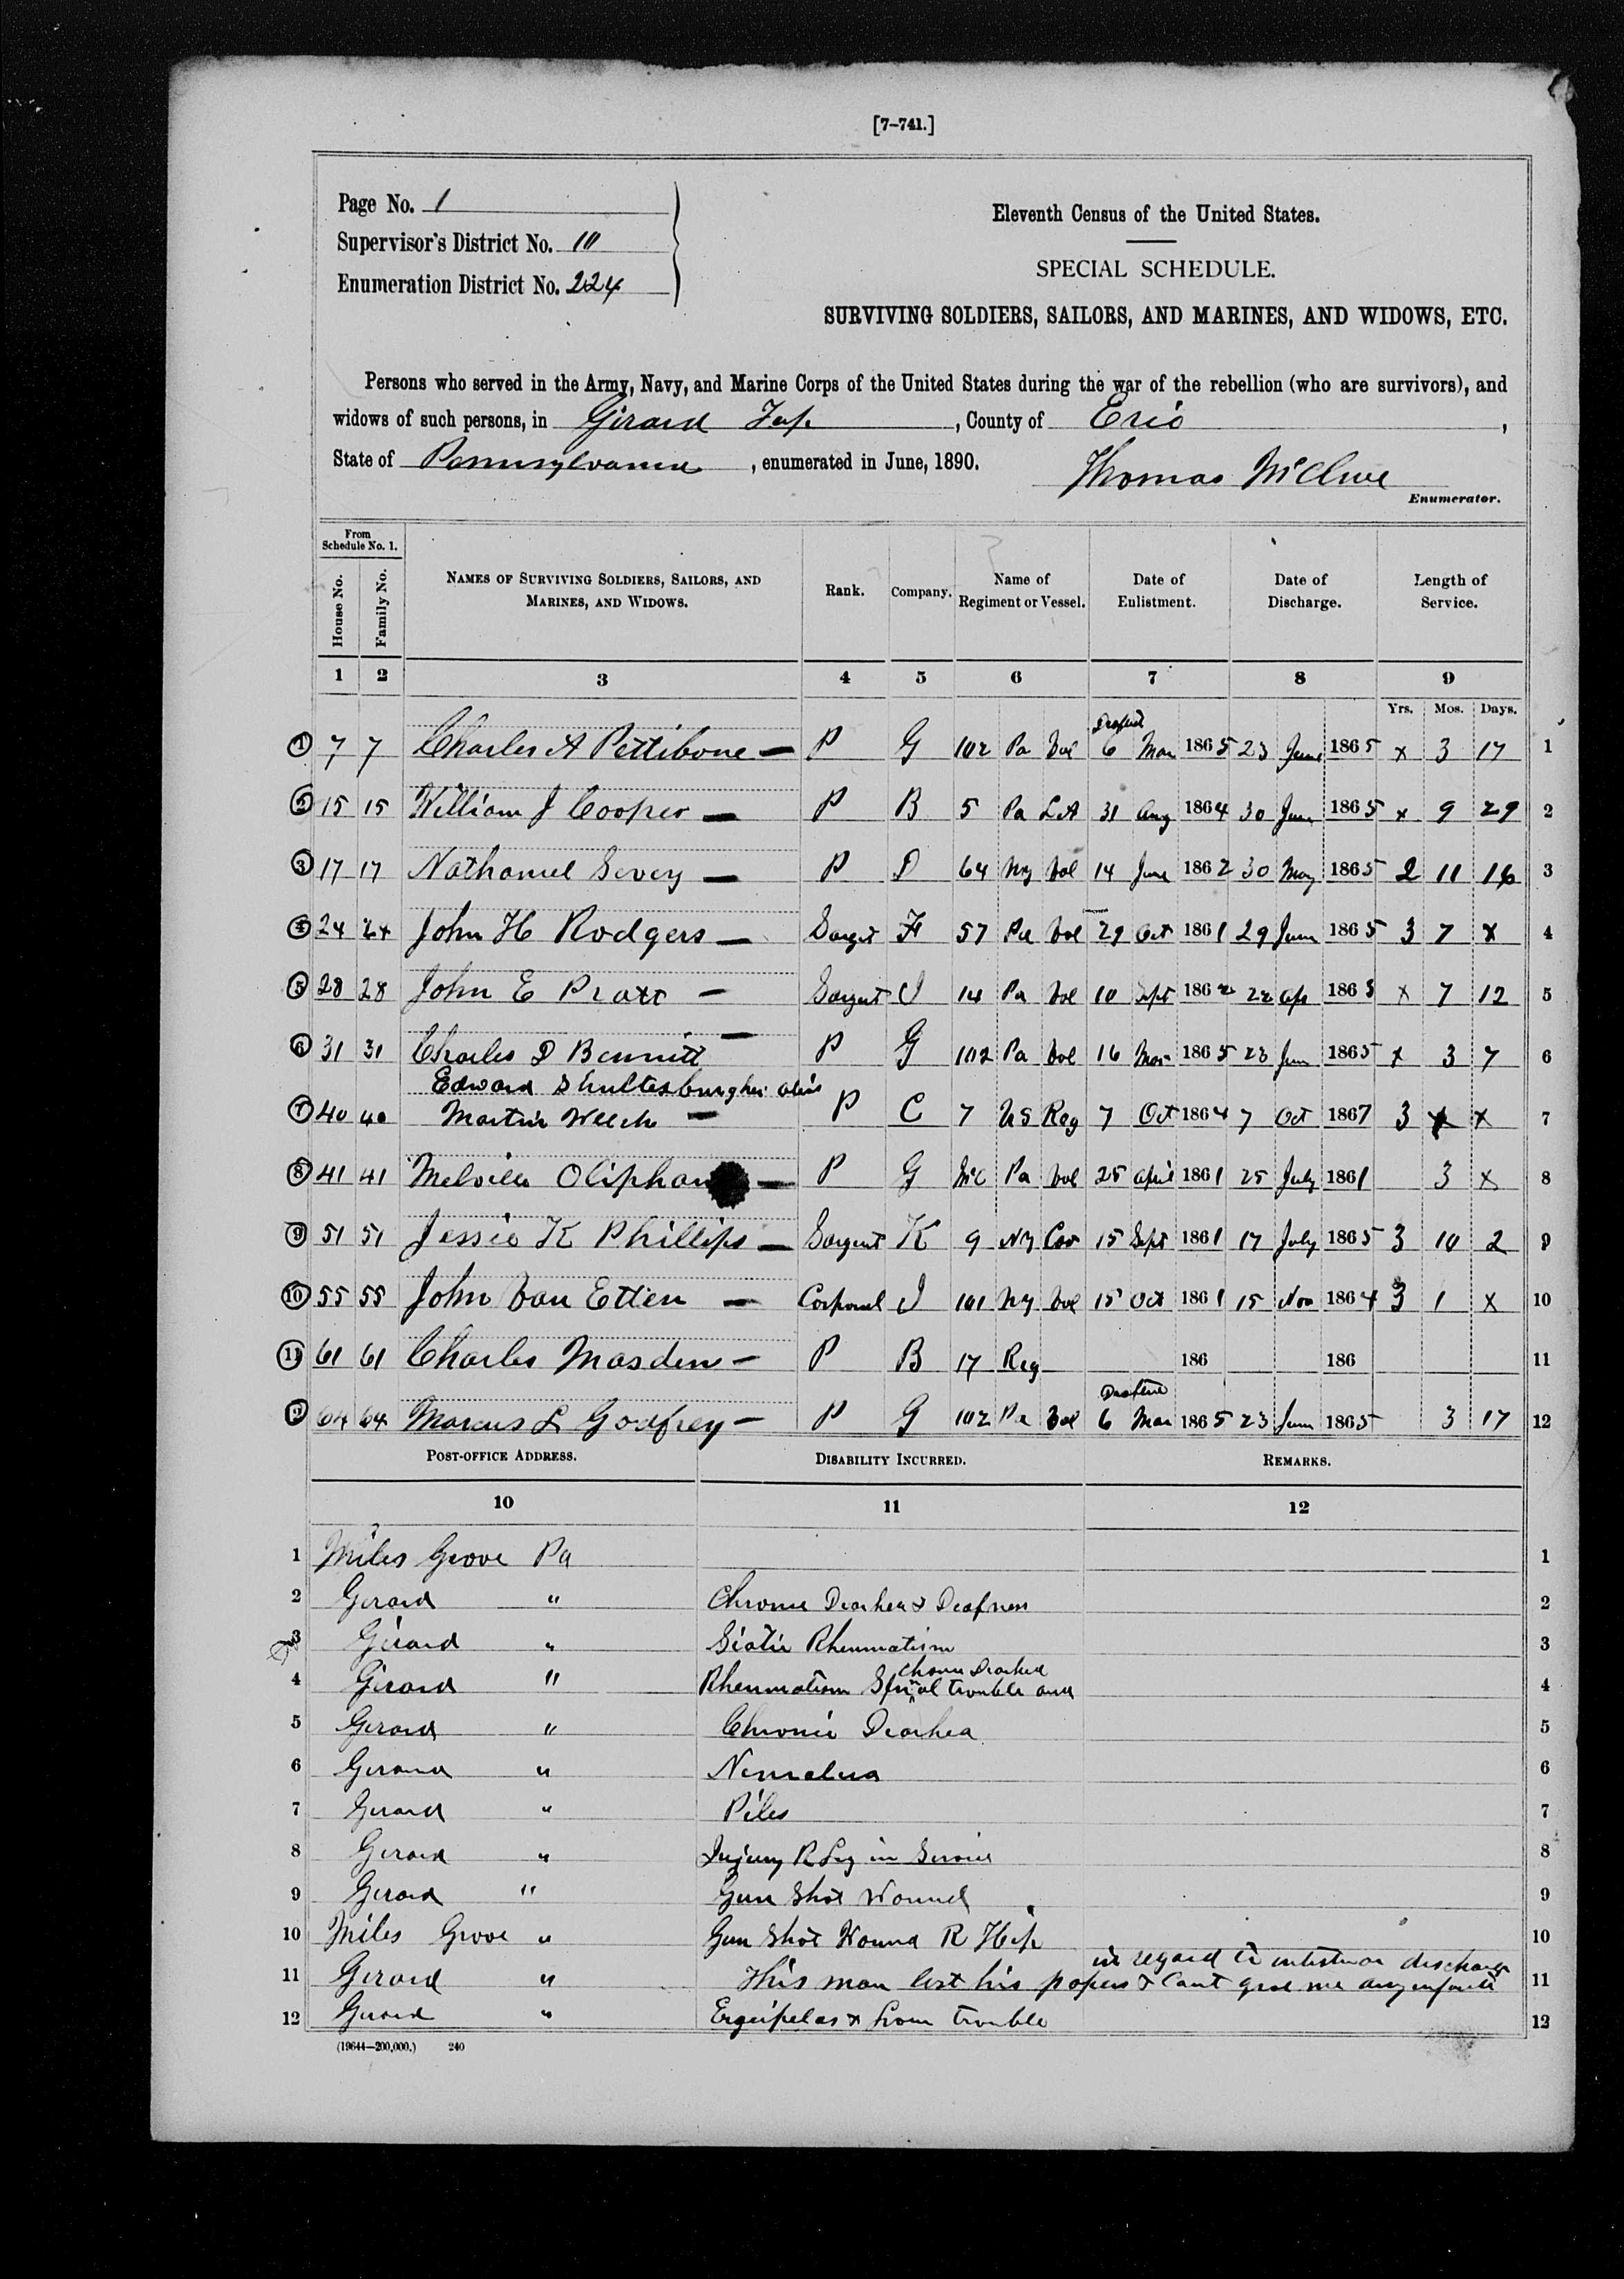 [7-741.]
Page No. 1
Supervisor's District No. 10
Enumeration District No. 224
Eleventh Census of the United States.
SPECIAL SCHEDULE.
SURVIVING SOLDIERS, SAILORS, AND MARINES, AND WIDOWS, ETC.
Persons who served in the Army, Navy, and Marine Corps of the United States during the war of the rebellion (who are survivors), and
widows of such persons, in Girard Tup. , County of Erie ,
State of Pennsylvania , enumerated in June, 1890.
Thomas McClure
Enumerator.
From Schedule No. 1.
House No.
Family No.
NAMES OF SURVIVING SOLDIERS, SAILORS, AND MARINES, AND WIDOWS.
Rank.
Company.
Name of Regiment or Vessel.
Date of Enlistment.
Date of Discharge.
Length of Service.
1 2 3 4 5 6 7 8 9
Yrs. Mos. Days.
1 7 7 Charles A Pettibone — P G 102 Pa Vol Drafted 6 Mar 1865 23 June 1865 x 3 17 1
2 15 15 William J Cooper — P B 5 Pa L A 31 Aug 1864 30 June 1865 x 9 29 2
3 17 17 Nathaniel Sevey — P D 64 Ny Vol 14 June 1862 30 May 1865 2 11 16 3
4 24 24 John H Rodgers — Sargt F 57 Pa Vol 29 Oct 1861 29 June 1865 3 7 x 4
5 28 28 John E Pratt — Sargent I 14 Pa Vol 10 Sept 1862 22 Apr 1863 x 7 12 5
6 31 31 Charles D Bennitt — P G 102 Pa Vol 16 Mar 1865 23 Jun 1865 x 3 7 6
Edward Shultesburgher alias
7 40 40 Martin Welch — P C 7 US Reg 7 Oct 1864 7 Oct 1867 3 x x 7
8 41 41 Melville Oliphant — P G McL Pa Vol 25 April 1861 25 July 1861 3 x 8
9 51 51 Jessie K Phillips — Sargent K 9 NY Cav 15 Sept 1861 17 July 1865 3 10 2 9
10 55 55 John Van Etten — Corporal I 101 Ny Vol 15 Oct 1861 15 Nov 1864 3 1 x 10
11 61 61 Charles Masden — P B 17 Reg 186 186 11
12 64 64 Marcus L Godfrey — P G 102 Pa Vol 6 Mar 1865 23 Jun 1865 3 17 12
POST-OFFICE ADDRESS.
DISABILITY INCURRED.
REMARKS.
10 11 12
1 Miles Grove Pa 1
2 Girard " Chronic Diarhea & Deafness 2
3 Girard " Siatic Rheumatism 3
Chronic Diarhea
4 Girard " Rheumatism Spinal trouble and 4
5 Girard " Chronic Diarhea 5
6 Girard " 6
7 Girard " Piles 7
8 Girard " Injury R Leg in Service 8
9 Girard " Gun Shot Wound 9
10 Miles Grove " Gun Shot Wound R Hip 10
in regard to discharge
11 Girard " This man lost his papers & Cant give me any 11
12 Girard " trouble 12
(19644—200,000.) 240